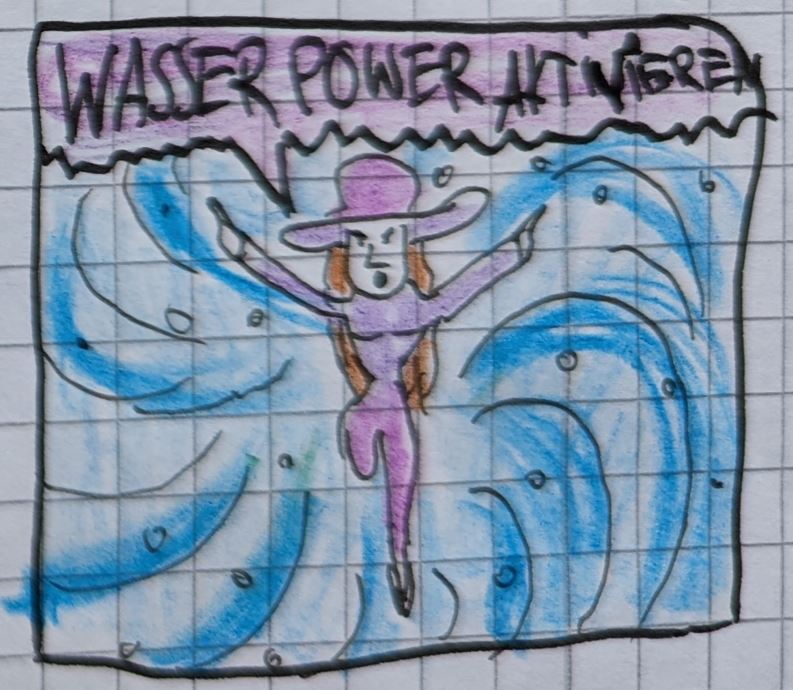 WASSER POWER AKTIVIEREN